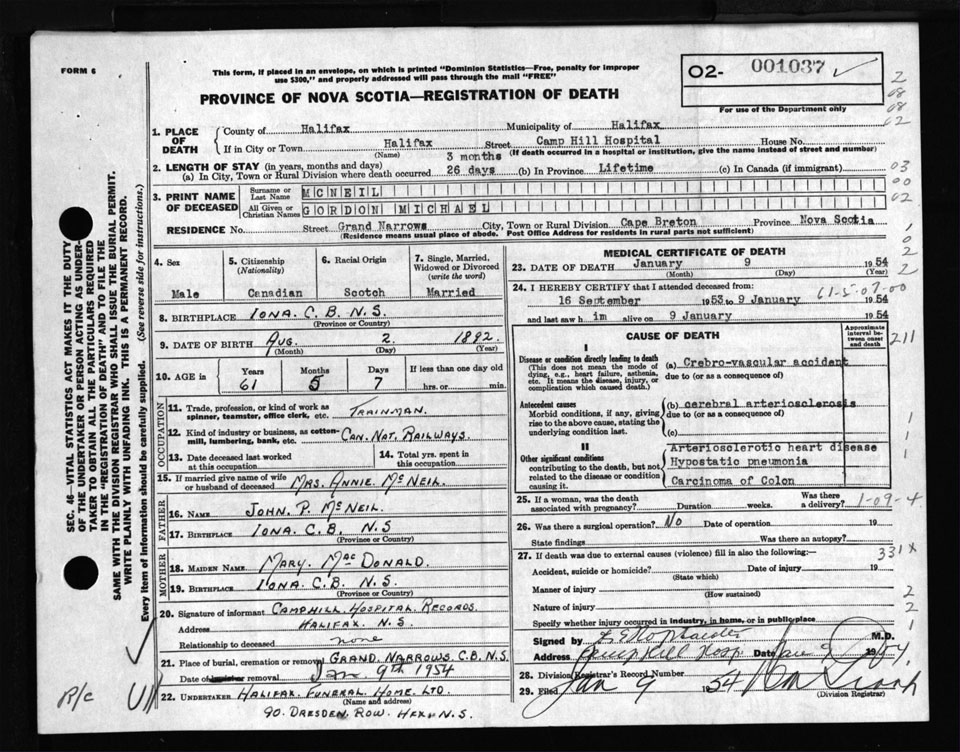 FORM 6
This form, if placed in an envelope, on which is printed "Dominion Statistics—Free, penalty for improper
use $300," and properly addressed will pass through the mail "FREE"
PROVINCE OF NOVA SCOTIA—REGISTRATION OF DEATH
O2- 001037
For use of the Department only
2
08
08
02
1. PLACE OF DEATH
County of Halifax Municipality of Halifax
If in City or Town Halifax Street Camp Hill Hospital House No.
(Name) (If death occurred in a hospital or institution, give the name instead of street and number)
2. LENGTH OF STAY (in years, months and days) 3 months
(a) In City, Town or Rural Division where death occurred 26 days (b) In Province Lifetime (c) In Canada (if immigrant)
03
00
02
3. PRINT NAME OF DECEASED
Surname or Last Name MCNEIL
All Given or Christian Names GORDON MICHAEL
RESIDENCE No. Street Grand Narrows City, Town or Rural Division Cape Breton Province Nova Scotia
(Residence means usual place of abode. Post Office Address for residents in rural parts not sufficient)
4. Sex
Male
5. Citizenship
(Nationality)
Canadian
6. Racial Origin
Scotch
7. Single, Married,
Widowed or Divorced
(write the word)
Married
8. BIRTHPLACE IONA. C. B. N.S.
(Province or Country)
9. DATE OF BIRTH AUG. 2. 1892
(Month) (Day) (Year)
10. AGE in Years Months Days If less than one day old
61 5 7 hrs. or min.
OCCUPATION
11. Trade, profession, or kind of work as
spinner, teamster, office clerk, etc. TRAINMAN.
12. Kind of industry or business, as cotton-
mill, lumbering, bank, etc. CAN. NAT. RAILWAYS.
13. Date deceased last worked
at this occupation
14. Total yrs. spent in
this occupation
15. If married give name of wife
or husband of deceased MRS. ANNIE MCNEIL.
FATHER
16. NAME JOHN. P. MCNEIL.
17. BIRTHPLACE IONA. C. B. N.S
(Province or Country)
MOTHER
18. MAIDEN NAME MARY. MAC DONALD.
19. BIRTHPLACE IONA. C. B. N.S.
(Province or Country)
20. Signature of informant CAMPHILL. HOSPITAL. RECORDS.
Address HALIFAX. N.S.
Relationship to deceased none
21. Place of burial, cremation or removal GRAND. NARROWS. C.B. N.S.
Date of burial or removal Jan. 9th 1954
22. UNDERTAKER HALIFAX. FUNERAL HOME. LTD.
(Name and address)
90. DRESDEN. ROW. HFX. N.S.
MEDICAL CERTIFICATE OF DEATH
23. DATE OF DEATH January 9 1954
(Month) (Day) (Year)
24. I HEREBY CERTIFY that I attended deceased from:
16 September 1953 to 9 January 1954
and last saw him alive on 9 January 1954
61-5-07-00
CAUSE OF DEATH
Approximate
interval between
onset
and death
I
Disease or condition directly leading to death
(This does not mean the mode of
dying, e.g., heart failure, asthenia,
etc. It means the disease, injury, or
complication which caused death.)
(a) Crebro-vascular accident
due to (or as a consequence of)
Antecedent causes
Morbid conditions, if any, giving
rise to the above cause, stating the
underlying condition last.
(b) cerebral arteriosclerosis
due to (or as a consequence of)
(c)
II
Other significant conditions
contributing to the death, but not
related to the disease or condition
causing it.
Arteriosclerotic heart disease
Hypostatic pneumonia
Carcinoma of Colon
25. If a woman, was the death
associated with pregnancy? Duration weeks. Was there
a delivery?
1-09-4
26. Was there a surgical operation? No Date of operation 19
State findings Was there an autopsy?
27. If death was due to external causes (violence) fill in also the following:—
331X
Accident, suicide or homicide? Date of injury 19
(State which)
Manner of injury
(How sustained)
Nature of injury
Specify whether injury occurred in industry, in home, or in public place
Signed by M.D.
Address Camp Hill Hosp Date Jan 9 1954
28. Division Registrar's Record Number
29. Filed Jan 9 1954
(Division Registrar)
SEC. 46—VITAL STATISTICS ACT MAKES IT THE DUTY
OF THE UNDERTAKER OR PERSON ACTING AS UNDER-
TAKER TO OBTAIN ALL THE PARTICULARS REQUIRED
IN THE "REGISTRATION OF DEATH" AND TO FILE THE
SAME WITH THE DIVISION REGISTRAR WHO SHALL ISSUE THE BURIAL PERMIT.
WRITE PLAINLY WITH UNFADING INK. THIS IS A PERMANENT RECORD.
Every item of information should be carefully supplied. (See reverse side for instructions.)
R/C
211